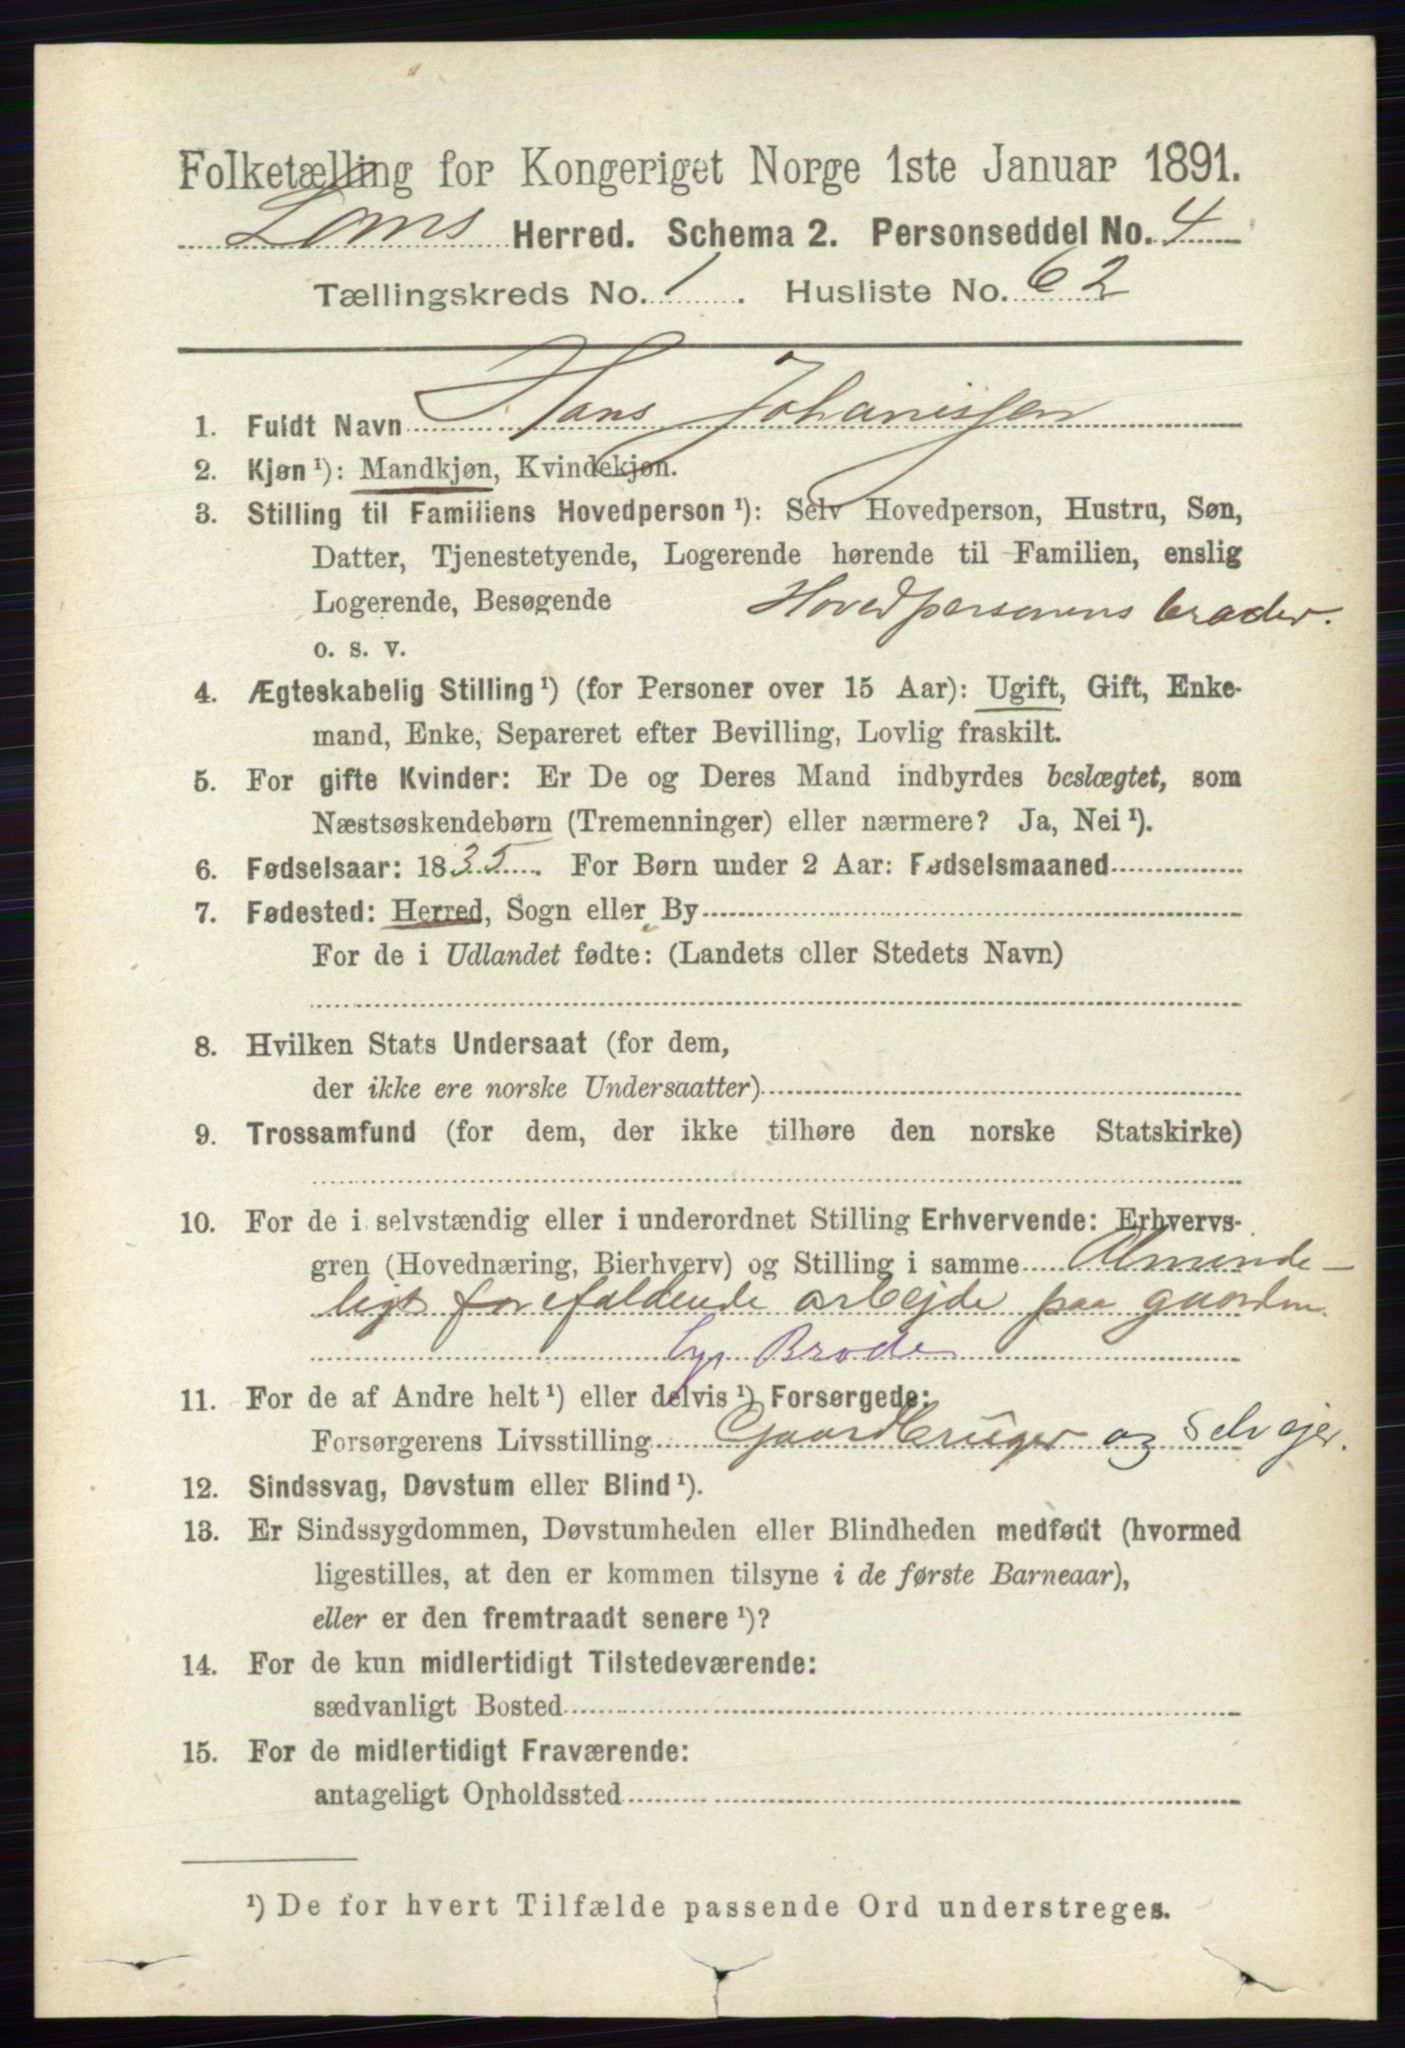 Folketælling for Kongeriget Norge 1ste Januar 1891.
Loms Herred. Schema 2. Personseddel No. 4
Tællingskreds No. 1. Husliste No. 62
1. Fuldt Navn Hans Johanissen
2. Kjøn ¹): Mandkjøn, Kvindekjøn.
3. Stilling til Familiens Hovedperson ¹): Selv Hovedperson, Hustru, Søn,
Datter, Tjenestetyende, Logerende hørende til Familien, enslig
Logerende, Besøgende Hovedpersonens broder.
o. s. v.
4. Ægteskabelig Stilling ¹) (for Personer over 15 Aar): Ugift, Gift, Enke-
mand, Enke, Separeret efter Bevilling, Lovlig fraskilt.
5. For gifte Kvinder: Er De og Deres Mand indbyrdes beslægtet, som
Næstsøskendebørn (Tremenninger) eller nærmere? Ja, Nei ¹).
6. Fødselsaar: 1835. For Børn under 2 Aar: Fødselsmaaned
7. Fødested: Herred, Sogn eller By
For de i Udlandet fødte: (Landets eller Stedets Navn)
8. Hvilken Stats Undersaat (for dem,
der ikke ere norske Undersaatter)
9. Trossamfund (for dem, der ikke tilhøre den norske Statskirke)
10. For de i selvstændig eller i underordnet Stilling Erhvervende: Erhvervs-
gren (Hovednæring, Bierhverv) og Stilling i samme Alminde-
ligt forefaldende arbejde paa gaarden.
Brode
11. For de af Andre helt ¹) eller delvis ¹) Forsørgede:
Forsørgerens Livsstilling Gaardbruger og selvejer.
12. Sindssvag, Døvstum eller Blind ¹).
13. Er Sindssygdommen, Døvstumheden eller Blindheden medfødt (hvormed
ligestilles, at den er kommen tilsyne i de første Barneaar),
eller er den fremtraadt senere ¹)?
14. For de kun midlertidigt Tilstedeværende:
sædvanligt Bosted
15. For de midlertidigt Fraværende:
antageligt Opholdssted
¹) De for hvert Tilfælde passende Ord understreges.